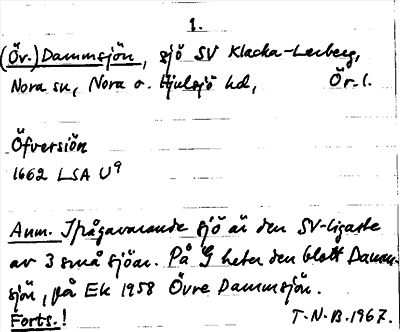 1.
(Öv.) Dammsjön, sjö SV Klacka-Lerberg,
Nora sn, Nora o. Hjulsjö hd, Ör. l.
Öfversiön
1662 LSA U9
Anm. Ifrågavarande sjö är den SV-ligaste
av 3 små sjöar. På G heter den blott Damm-
sjön, på Ek 1958 Övre Dammsjön.
Forts.! T-N-B. 1967.